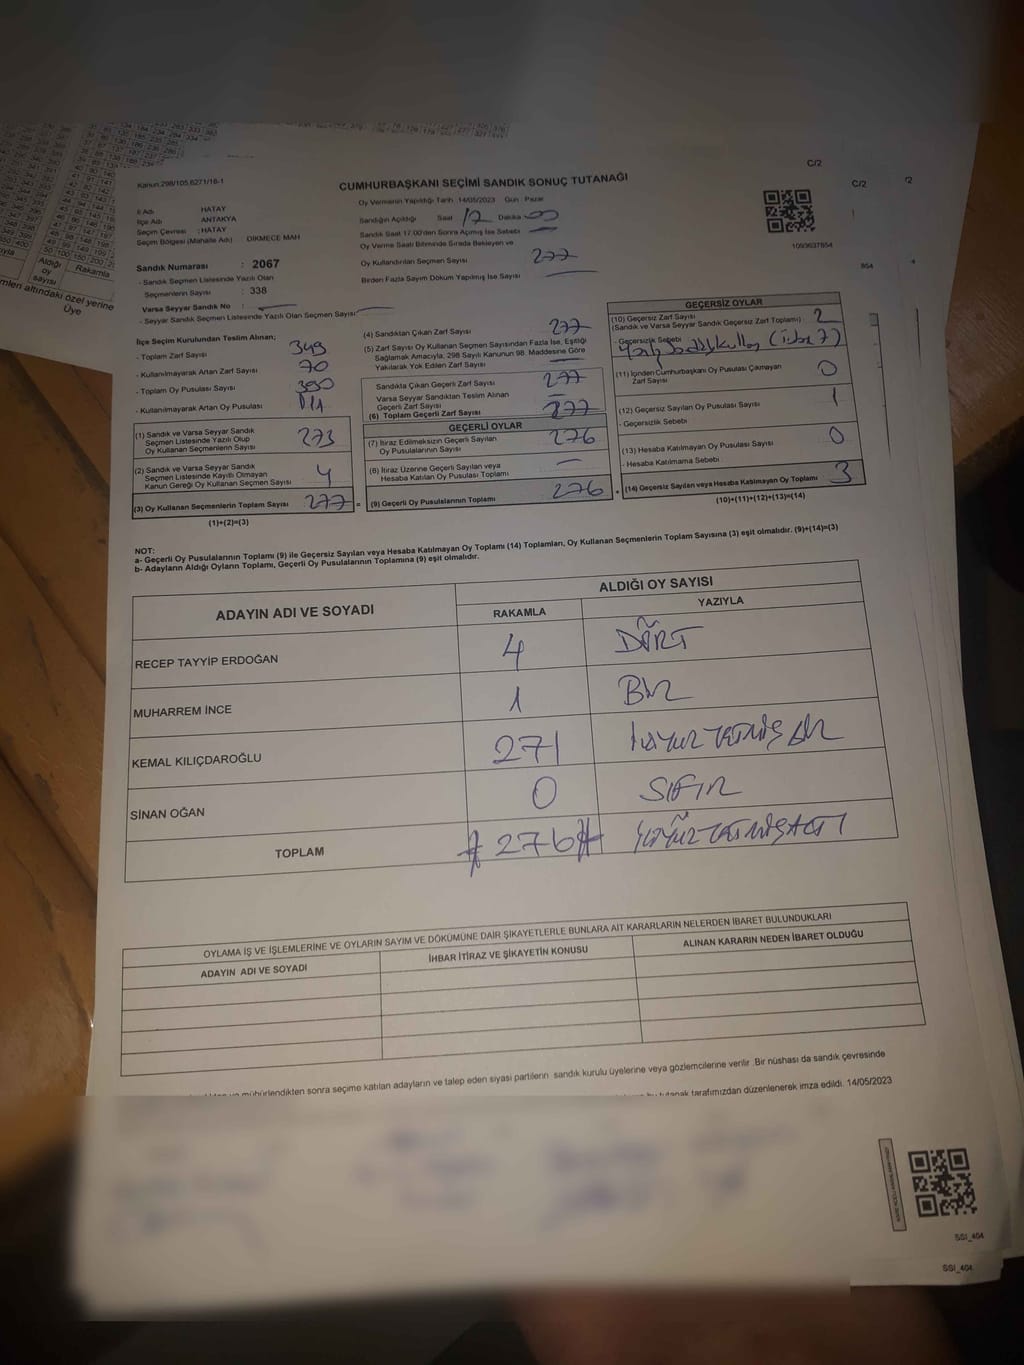 C/2
C/2
Kanun:298/105,6271/16-1
CUMHURBAŞKANI SEÇİMİ SANDIK SONUÇ TUTANAĞI
İl Adı : HATAY
İlçe Adı : ANTAKYA
Seçim Çevresi : HATAY
Seçim Bölgesi (Mahalle Adı) : DİKMECE MAH
Sandık Numarası : 2067
- Sandık Seçmen Listesinde Yazılı Olan
Seçmenlerin Sayısı : 338
Varsa Seyyar Sandık No :
- Seyyar Sandık Seçmen Listesinde Yazılı Olan Seçmen Sayısı:
Oy Vermenin Yapıldığı Tarih :14/05/2023 Gün : Pazar
Sandığın Açıldığı Saat 17 Dakika 00
Sandık Saat 17.00'den Sonra Açılmış İse Sebebi
Oy Verme Saati Bitiminde Sırada Bekleyen ve
Oy Kullandırılan Seçmen Sayısı 277
Birden Fazla Sayım Döküm Yapılmış İse Sayısı
1093637654
İlçe Seçim Kurulundan Teslim Alınan;
- Toplam Zarf Sayısı 349
- Kullanılmayarak Artan Zarf Sayısı 70
- Toplam Oy Pusulası Sayısı
- Kullanılmayarak Artan Oy Pusulası
(1) Sandık ve Varsa Seyyar Sandık
Seçmen Listesinde Yazılı Olup
Oy Kullanan Seçmenlerin Sayısı 273
(2) Sandık ve Varsa Seyyar Sandık
Seçmen Listesinde Kayıtlı Olmayan
Kanun Gereği Oy Kullanan Seçmen Sayısı 4
(3) Oy Kullanan Seçmenlerin Toplam Sayısı 277 =
(1)+(2)=(3)
(4) Sandıktan Çıkan Zarf Sayısı 277
(5) Zarf Sayısı Oy Kullanan Seçmen Sayısından Fazla İse, Eşitliği
Sağlamak Amacıyla, 298 Sayılı Kanunun 98. Maddesine Göre
Yakılarak Yok Edilen Zarf Sayısı
Sandıkta Çıkan Geçerli Zarf Sayısı 277
Varsa Seyyar Sandıktan Teslim Alınan
Geçerli Zarf Sayısı
(6) Toplam Geçerli Zarf Sayısı 277
GEÇERLİ OYLAR
(7) İtiraz Edilmeksizin Geçerli Sayılan
Oy Pusulalarının Sayısı 276
(8) İtiraz Üzerine Geçerli Sayılan veya
Hesaba Katılan Oy Pusulası Toplamı
(9) Geçerli Oy Pusulalarının Toplamı 276 +
GEÇERSİZ OYLAR
(10) Geçersiz Zarf Sayısı 2
(Sandık ve Varsa Seyyar Sandık Geçersiz Zarf Toplamı)
- Geçersizlik Sebebi
(11) İçinden Cumhurbaşkanı Oy Pusulası Çıkmayan
Zarf Sayısı 0
(12) Geçersiz Sayılan Oy Pusulası Sayısı 1
- Geçersizlik Sebebi
(13) Hesaba Katılmayan Oy Pusulası Sayısı 0
- Hesaba Katılmama Sebebi
(14) Geçersiz Sayılan veya Hesaba Katılmayan Oy Toplamı 3
(10)+(11)+(12)+(13)=(14)
NOT:
a- Geçerli Oy Pusulalarının Toplamı (9) ile Geçersiz Sayılan veya Hesaba Katılmayan Oy Toplamı (14) Toplamları, Oy Kullanan Seçmenlerin Toplam Sayısına (3) eşit olmalıdır. (9)+(14)=(3)
b- Adayların Aldığı Oyların Toplamı, Geçerli Oy Pusulalarının Toplamına (9) eşit olmalıdır.
ADAYIN ADI VE SOYADI
ALDIĞI OY SAYISI
RAKAMLA YAZIYLA
RECEP TAYYİP ERDOĞAN 4 DÖRT
MUHARREM İNCE 1 BİR
KEMAL KILIÇDAROĞLU 271 İKİYÜZYETMİŞBİR
SİNAN OĞAN 0 SIFIR
TOPLAM # 276 # İKİYÜZYETMİŞALTI
OYLAMA İŞ VE İŞLEMLERİNE VE OYLARIN SAYIM VE DÖKÜMÜNE DAİR ŞİKAYETLERLE BUNLARA AİT KARARLARIN NELERDEN İBARET BULUNDUKLARI
ADAYIN ADI VE SOYADI İHBAR İTİRAZ VE ŞİKAYETİN KONUSU ALINAN KARARIN NEDEN İBARET OLDUĞU
mühürlendikten sonra seçime katılan adayların ve talep eden siyasi partilerin sandık kurulu üyelerine veya gözlemcilerine verilir. Bir nüshası da sandık çevresinde
bu tutanak tarafımızdan düzenlenerek imza edildi. 14/05/2023
SSI_404
SSI_404